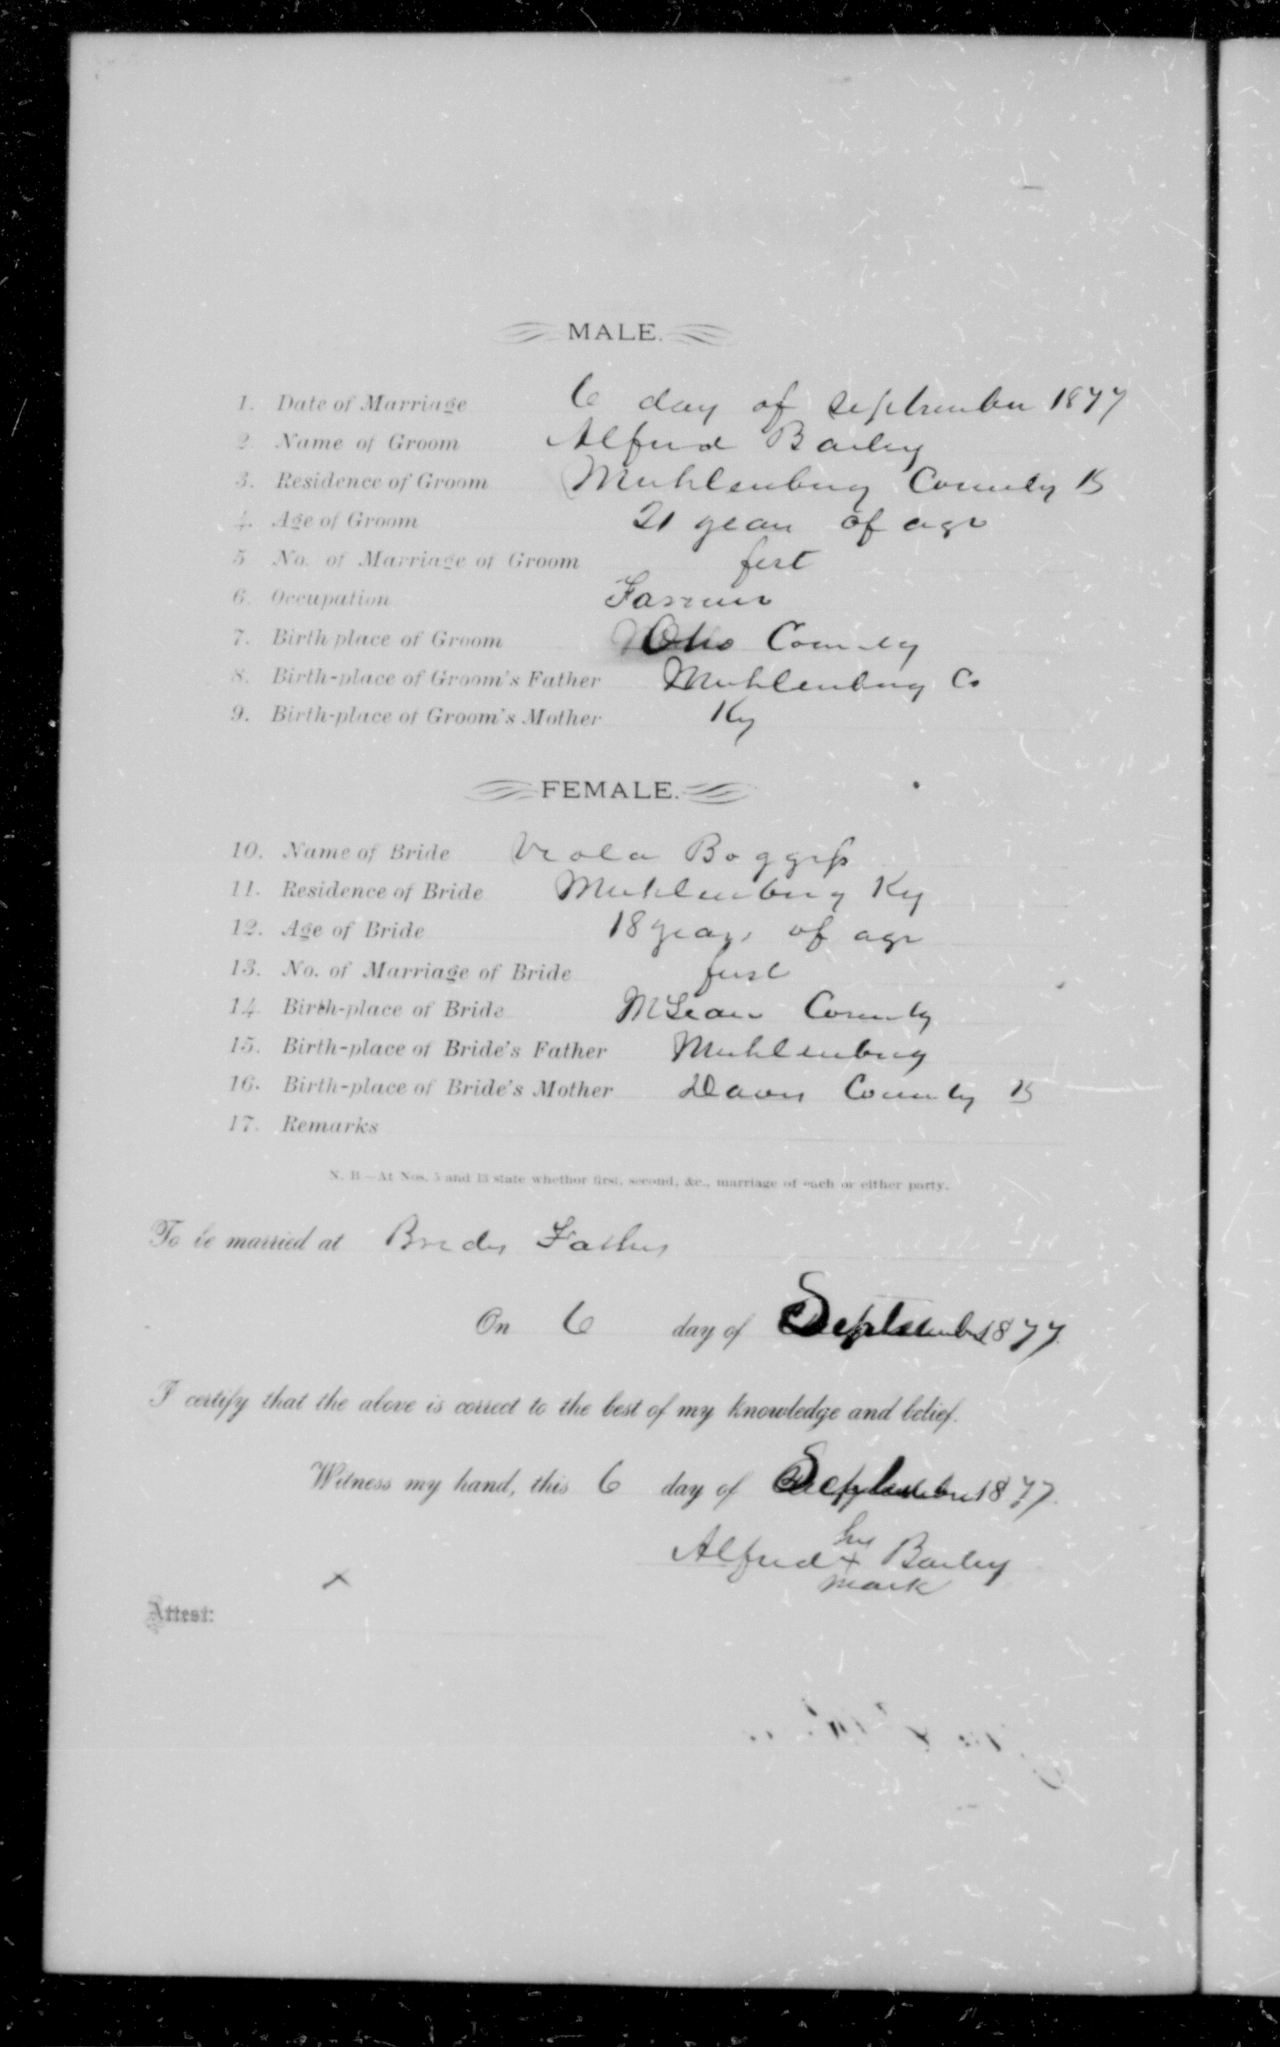 MALE.
1. Date of Marriage 6 day of September 1877
2. Name of Groom Alfred Bailey
3. Residence of Groom Muhlenburg County K
4. Age of Groom 21 years of age
5 No. of Marriage of Groom first
6. Occupation Farmer
7. Birth place of Groom Ohio County
8. Birth-place of Groom's Father Muhlenburg Co
9. Birth-place of Groom's Mother Ky
FEMALE.
10. Name of Bride Viola Boggess
11. Residence of Bride Muhlenburg Ky
12. Age of Bride 18 years of age
13. No. of Marriage of Bride first
14. Birth-place of Bride McLean County
15. Birth-place of Bride's Father Muhlenburg
16. Birth-place of Bride's Mother Daves County K
17. Remarks
N. B.—At Nos. 5 and 13 state whether first, second, &c., marriage of each or either party.
To be married at Brides Fathers
On 6 day of September 1877.
I certify that the above is correct to the best of my knowledge and belief.
Witness my hand, this 6 day of September 1877.
his
Alfred x Bailey
mark
x
Attest: